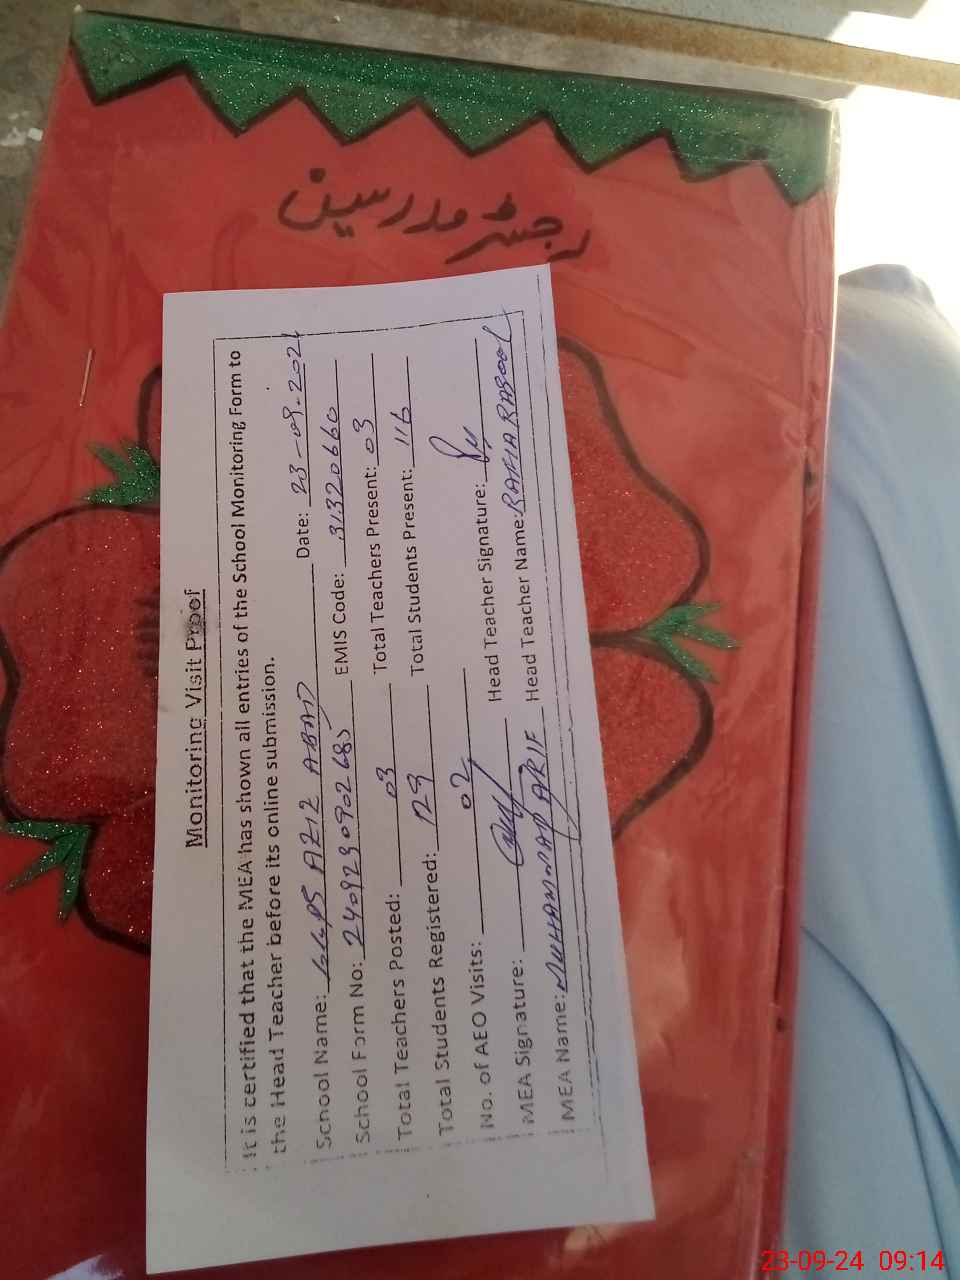 رجسٹر مدرسین
Monitoring Visit Proof
It is certified that the MEA has shown all entries of the School Monitoring Form to
the Head Teacher before its online submission.
School Name: GGPS AZIZ ABAD Date: 23-09-2024
School Form No: 240923090268 EMIS Code: 31320660
Total Teachers Posted: 03 Total Teachers Present: 03
Total Students Registered: 129 Total Students Present: 116
No. of AEO Visits: 02
MEA Signature: Head Teacher Signature:
MEA Name: MUHAMMAD ARIF Head Teacher Name: RAFIA RASOOL
23-09-24 09:14